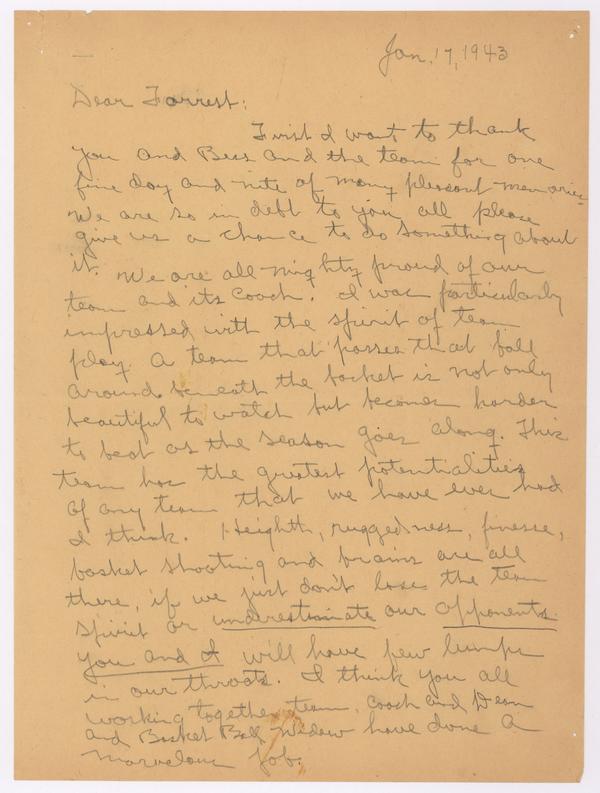 Jan. 17, 1943
Dear Forrest:
First I want to thank
you and Bess and the team for one
fine day and nite of many pleasant memories
We are so in debt to you all please
give us a chance to do something about
it. We are all mighty proud of our
team and its coach. I was particularly
impressed with the spirit of team
play. A team that passes that ball
around beneath the basket is not only
beautiful to watch but becomes harder
to beat as the season goes along. This
team has the greatest potentialities
of any team that we have ever had
I think. Heighth, ruggedness, finesse,
basket shooting and brains are all
there, if we just don't lose the team
spirit or underestimate our opponents.
You and I will have few lumps
in our throats. I think you all
working together team, coach and Dean
and Basket Ball Widow have done a
marvelous job.